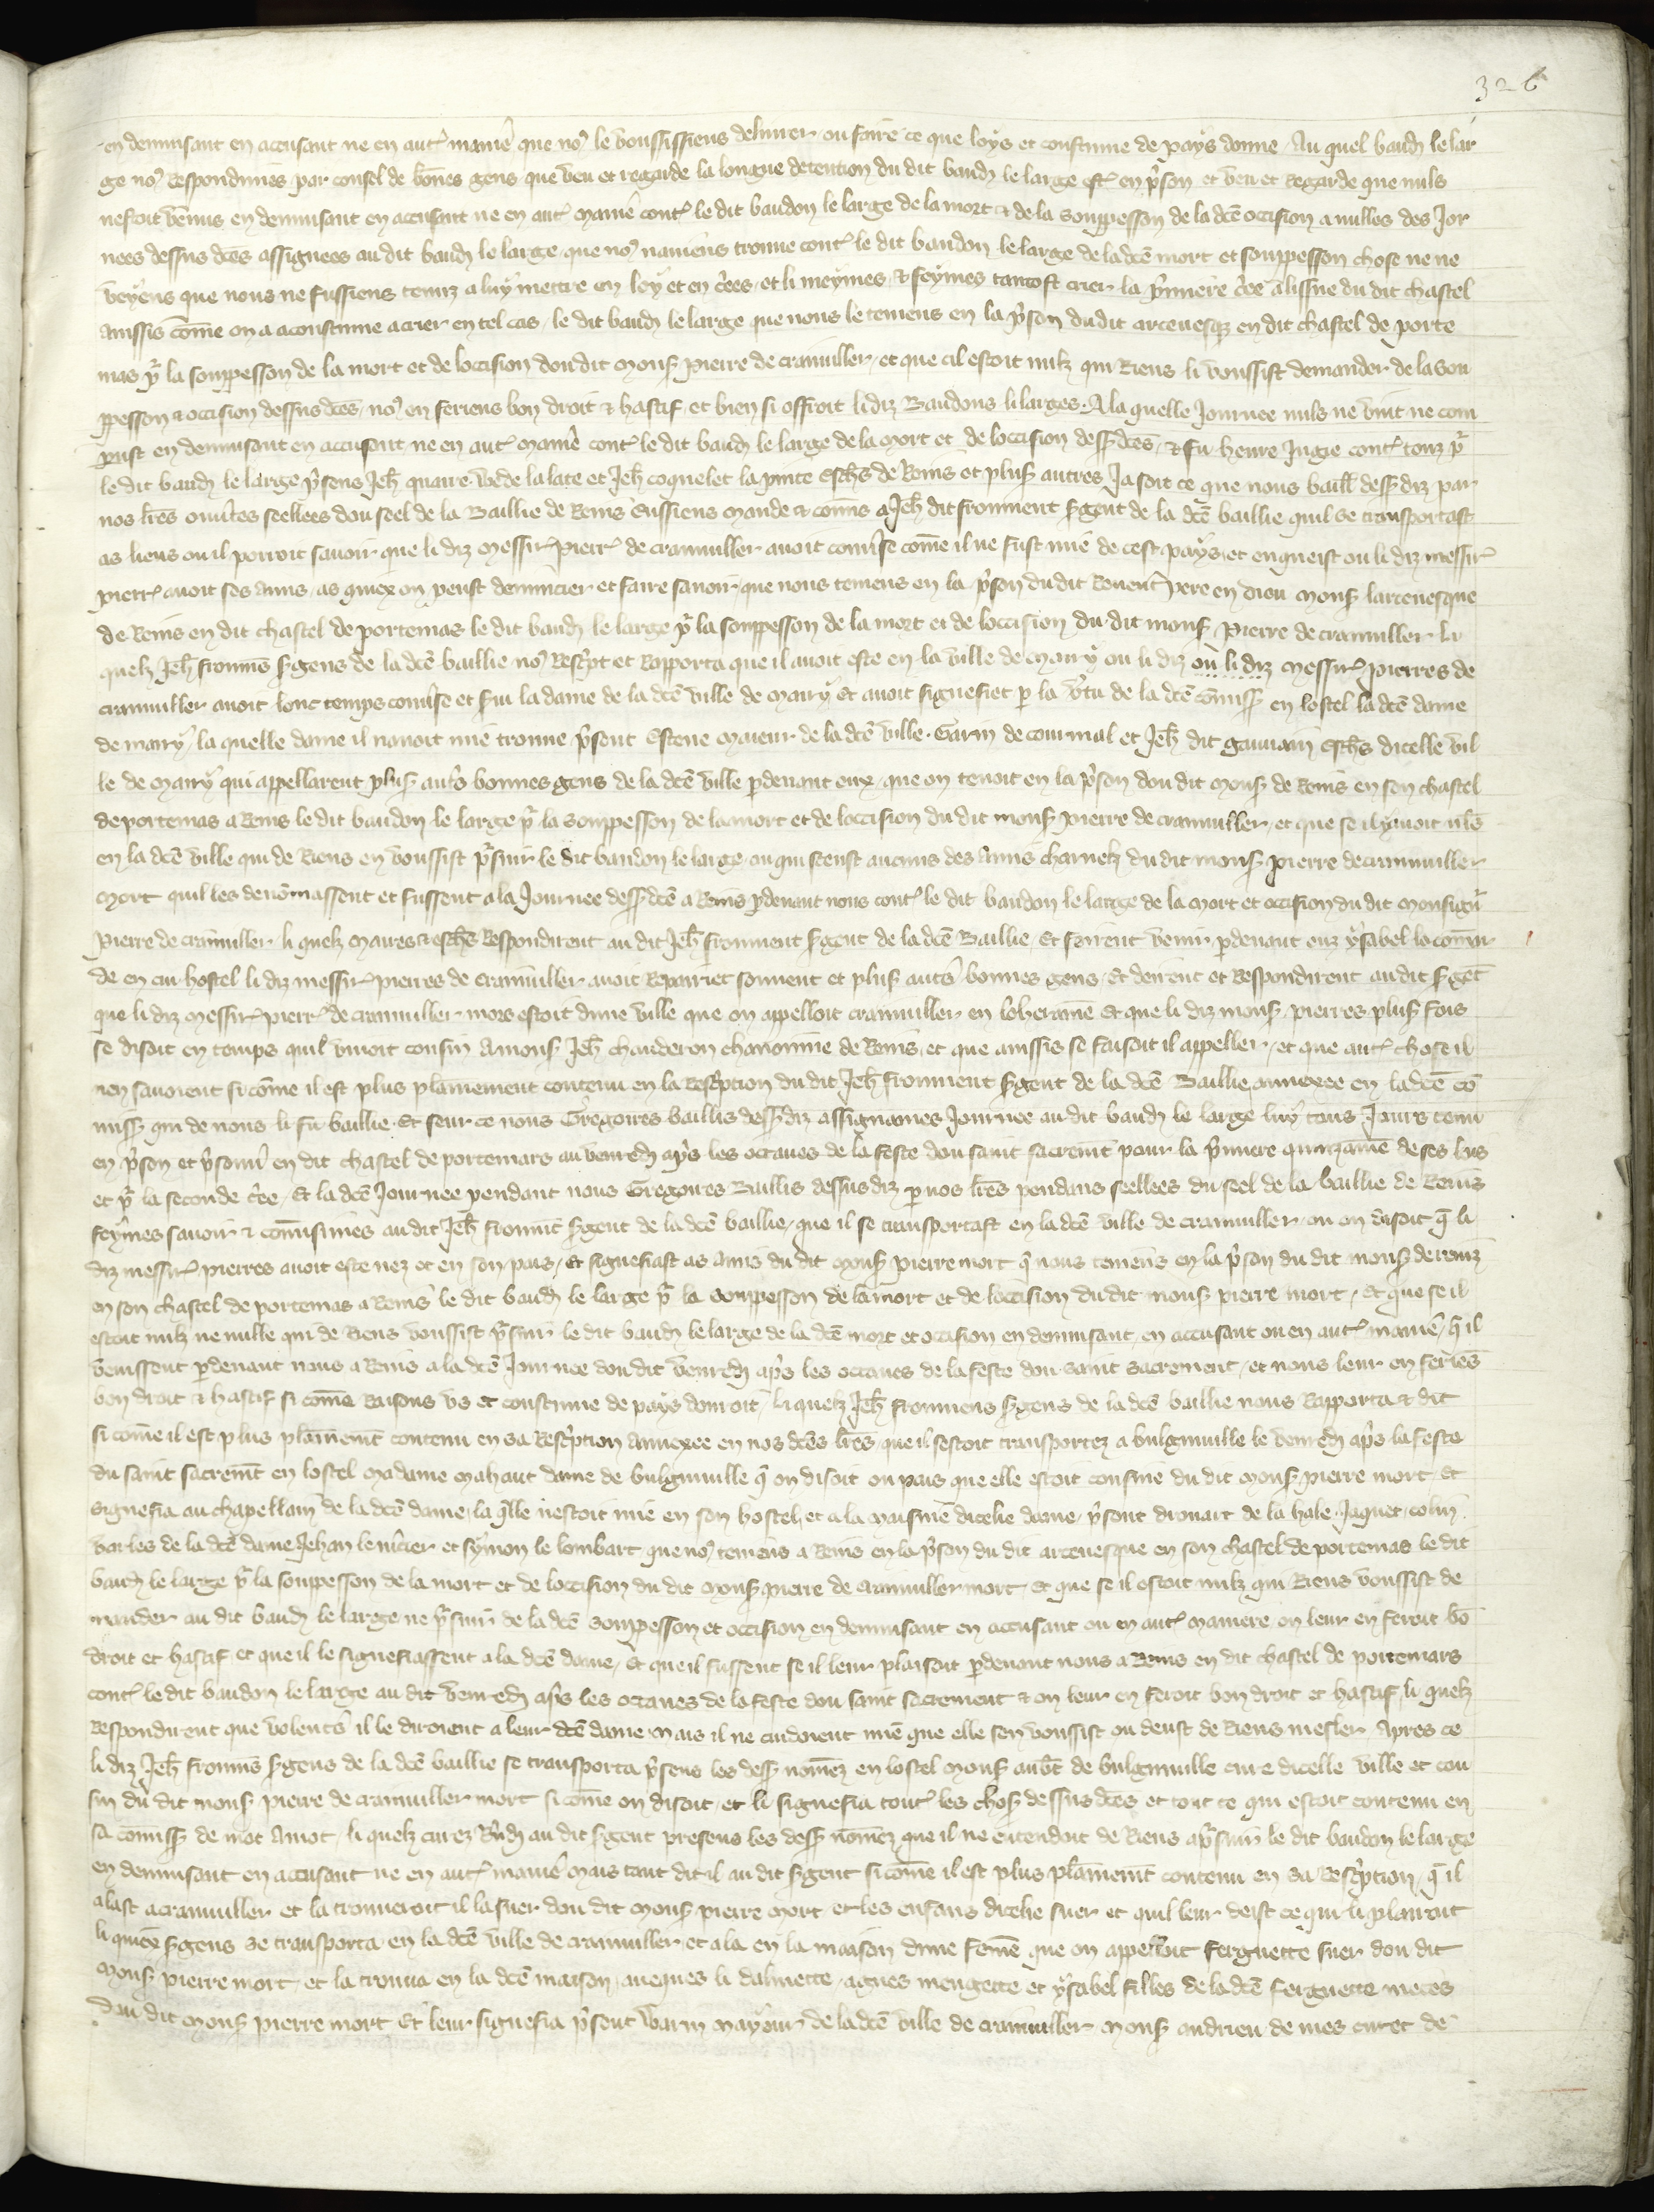 326
en denunsant en accusant ne en aut' maniē que noꝰ le voussissiens delivrer ou faire ce que loys et coustume de pays donne Au quel baudꝫ le lar
ge noꝰ Respondimes par consel de bōnes gens que veu et regarde la longue detention du dit baudꝫ le large est' en p'son et veu et Regarde que nuls
nestoit venus en denunsant en accusant ne en aut' maniē cont' le dit baudon le large de la mort & de la souppesson de la dcē occision a nulles des Jor
nees dessus dcēs assignees au dit baudꝫ le large que noꝰ naviens trouve cont' le dit baudon le large de la dcē mort et souppesson chose ne ne
veyens que nous ne fussiens tenuz a luy mettre en ley et en c'ees et li meymes & feymes tantost crier la p'miere c'ee a lissue du dit chastel
aussis cōme on a acoustume a crier en tel cas le dit baudꝫ le large que nous le teniens en la p'son du dit arcevesqꝫ en dit chastel de porte
mas pʳ la souppesson de la mort et de loccision dou dit mons' pierre de crainviller et que cil estoit nulz qui Riens li voussist demander de la sou
ppesson & occision dessus dcēs noꝰ en feriens bon droit & hastif et bien si offroit li diz Baudons li larges. A la quelle Journee nuls ne vint ne com
parust en denunsant en accusant ne en aut' maniē cont' le dit baudꝫ le large de la mort et de loccision dess' dcēs & fu heure Jugie cont' touz pʳ
le dit baudꝫ le large p'sens Jeh' quarre vede la late et Jeh' coquelet la pinte eschs de Reins et plus' autres Ja soit ce que nous baill' dess' diz par
nos lres ouv'tes seellees dou seel de la Baillie de Reins Eussiens mande & comis a Jeh' dit froument s'gent de la dcē baillie quil se transportast
as lieus ou il porroit savoir que li diz messir' pierr' de crainviller avoit conv'se cōme il ne fust mie de cest pays et enqueist ou li diz messir'
pierr' avoit ses amis as quex on peust denuncier et faire savoir que nous teniens en la p'son du dit Reverent pere en dieu mons' larcevesque
de Reins en dit chastel de portemas le dit baudꝫ le large pʳ la souppesson de la mort et de loccision du dit mons' pierre de crainviller li
quelz Jeh' fromns s'gens de la dcē baillie noꝰ Resc'pt et Rapporta que il avoit este en la ville de mairy ou li diz ou li diz messir' pierres de
crainviller avoit lonc temps conv'se et s'vi la dame de la dcē ville de mairy et avoit signefiet p la v'tu de la dcē comiss' en lostel la dcē dame
de mairy la quelle dame il navoit mie trouve p'sent Estene maieur de la dcē ville. Garin de courmal et Jeh' dit gauvain eschs dicelle vil
le de mairy qui appellarent plus' aut's bonnes gens de la dcē ville pdevant eux que on tenoit en la p'son dou dit mons' de Reins en son chastel
de portemas a Reins le dit baudon le large pʳ la souppesson de la mort et de loccision du dit mons' pierre de crainviller et que se il y avoit nls
en la dcē ville qui de Riens en voussist p'suir le dit baudon le large ou qui sceust aucuns des amis charnelz du dit mons' pierre de crainviller
mort quil les denōmassent et fussent a la Journee dess' dcē a Reins pdevant nous cont' le dit baudon le large de la mort et occision du dit monsignʳ
Pierre de crainviller li quelz maires & eschs Respondirent au dit Jeh' froument s'gent de la dcē Baillie Et feirent venir pdevant euz ysabel la coman
de en cui hostel li diz messir' pierres de crainviller avoit Repairiet souvent et plus' aut's bonnes gens Et deirent et Respondirent au dit s'get
que li diz messir' pierr' de crainviller mors estoit dune ville que on appelloit crainviller en loheraine Et que li diz mons' pierres plus' fois
se disoit en temps quil vivoit cousin a mons' Jeh' chauderon chanoinne de Reins et que aussis se faisoit il appeller et que aut' chose il
nen savoient si cōme il est plus plainement contenu en la Resc'ption du dit Jeh' froument s'gent de la dcē Baillie annexee en la dcē cō
miss' qui de nous li fu baillie. Et seur ce nous Gregoires baillis dess' diz assignames Journee au dit baudꝫ le large luy tous Jours tenu
en p'son et p'soniʳ en dit chastel de portemars au venredꝫ ap's les octaves de la feste dou saint sacremt pour la p'miere quinzaine de ses lus
et pʳ la seconde c'ee. Et la dcē Journee pendant nous Gregoires Baillis dessus diz p nos lres pendans seellees du seel de la baillie de Reins
feymes savoir & comisimes au dit Jeh' fromnt s'gent de la dcē baillie que il se transportast en la dcē ville de crainviller ou on disoit q̄ li
diz messir' pierres avoit este nez et en son pais Et signefiast as amis du dit mons' pierre mort q̄ nous teniens en la p'son du dit mons' de reinz
en son chastel de portemas a Reins le dit baudꝫ le large pʳ la souppesson de la mort et de loccision du dit mons' pierre mort Et que se il
estoit nulz ne nulle qui de Riens voussist p'suir le dit baudꝫ le large de la dcē mort et occision en denunsant en accusant ou en aut' maniē q̄ il
venissent pdevant nous a Reins a la dcē Journee dou dit venredꝫ ap's les octaves de la feste dou saint sacrement et nous leur en feries
bon droit & hastif si cōme Raisons us et coustume de pays donroit li quelz Jeh' froumens s'gens de la dcē baillie nous Rapporta & dit
si cōme il est plus plainemt contenu en sa Resc'ption annexee en nos dcēs lres que il sestoit transportez a bulgnuville le venredꝫ ap's la feste
du saint sacremt en lostel madame mahaut dame de bulgnuville q̄ on disoit ou pais que elle estoit cousine du dit mons' pierre mort Et
signefia au chapellain de la dcē dame la q̄lle nestoit mie en son hostel et a la maisnie dicelle dame p'sent drouart de la hale Jaquet colin
varles de la dcē dame Jehan le m'cier et symon le lombart que noꝰ teniens a Reins en la p'son du dit arcevesque en son chastel de portemas le dit
baudꝫ le large pʳ la souppesson de la mort et de loccision du dit mons' pierre de crainviller mort Et que se il estoit nulz qui Riens voussist de
mander au dit baudꝫ le large ne p'suir de la dcē souppesson et occision en denunsant en accusant ou en aut' maniere on leur en feroit bō
droit et hastif et que il le signefiassent a la dcē dame Et que il fussent se il leur plaisoit pdevant nous a Reins en dit chastel de portemars
cont' le dit baudon le large au dit venredꝫ ap's les octaves de la feste dou saint sacrement & on leur en feroit bon droit et hastif li quelz
Respondirent que volent's il le diroient a leur dcē dame mais il ne cuidoient mie que elle sen voussist ou deust de Riens mesler Apres ce
li diz Jeh' fromns s'gens de la dcē baillie se transporta p'sens les dess' nomez en lostel mons' aub't de bulgnuville cure dicelle ville et cou
sin du dit mons' pierre de crainviller mort si cōme on disoit et li signefia tout' les chos' dessus dcēs et tout ce qui estoit contenu en
sa comiss' de mot a mot li quelz curez R'ndꝫ au dit s'gent presens les dess' nōmez que il ne entendoit de Riens a p'suir le dit baudon le large
en denunsant en accusant ne en aut' maniē mais tant dit il au dit s'gent si cōme il est plus plainemt contenu en sa Resc'ption q̄ il
alast a crainviller et la trouveroit il la suer dou dit mons' pierre mort et les enfans dicelle suer et quil leur deist ce qui li plairoit
li quex s'gens se transporta en la dcē ville de crainviller et ala en la maison dune feme que on appelloit ferguette suer dou dit
mons' pierre mort et la trouva en la dcē maison aveques li dalinette agnes mengette et ysabel filles de la dcē ferguette nieces
dou dit mons' pierre mort Et leur signefia p'sent Warin mayeur de la dcē ville de crainviller mons' andrieu de mes curet de